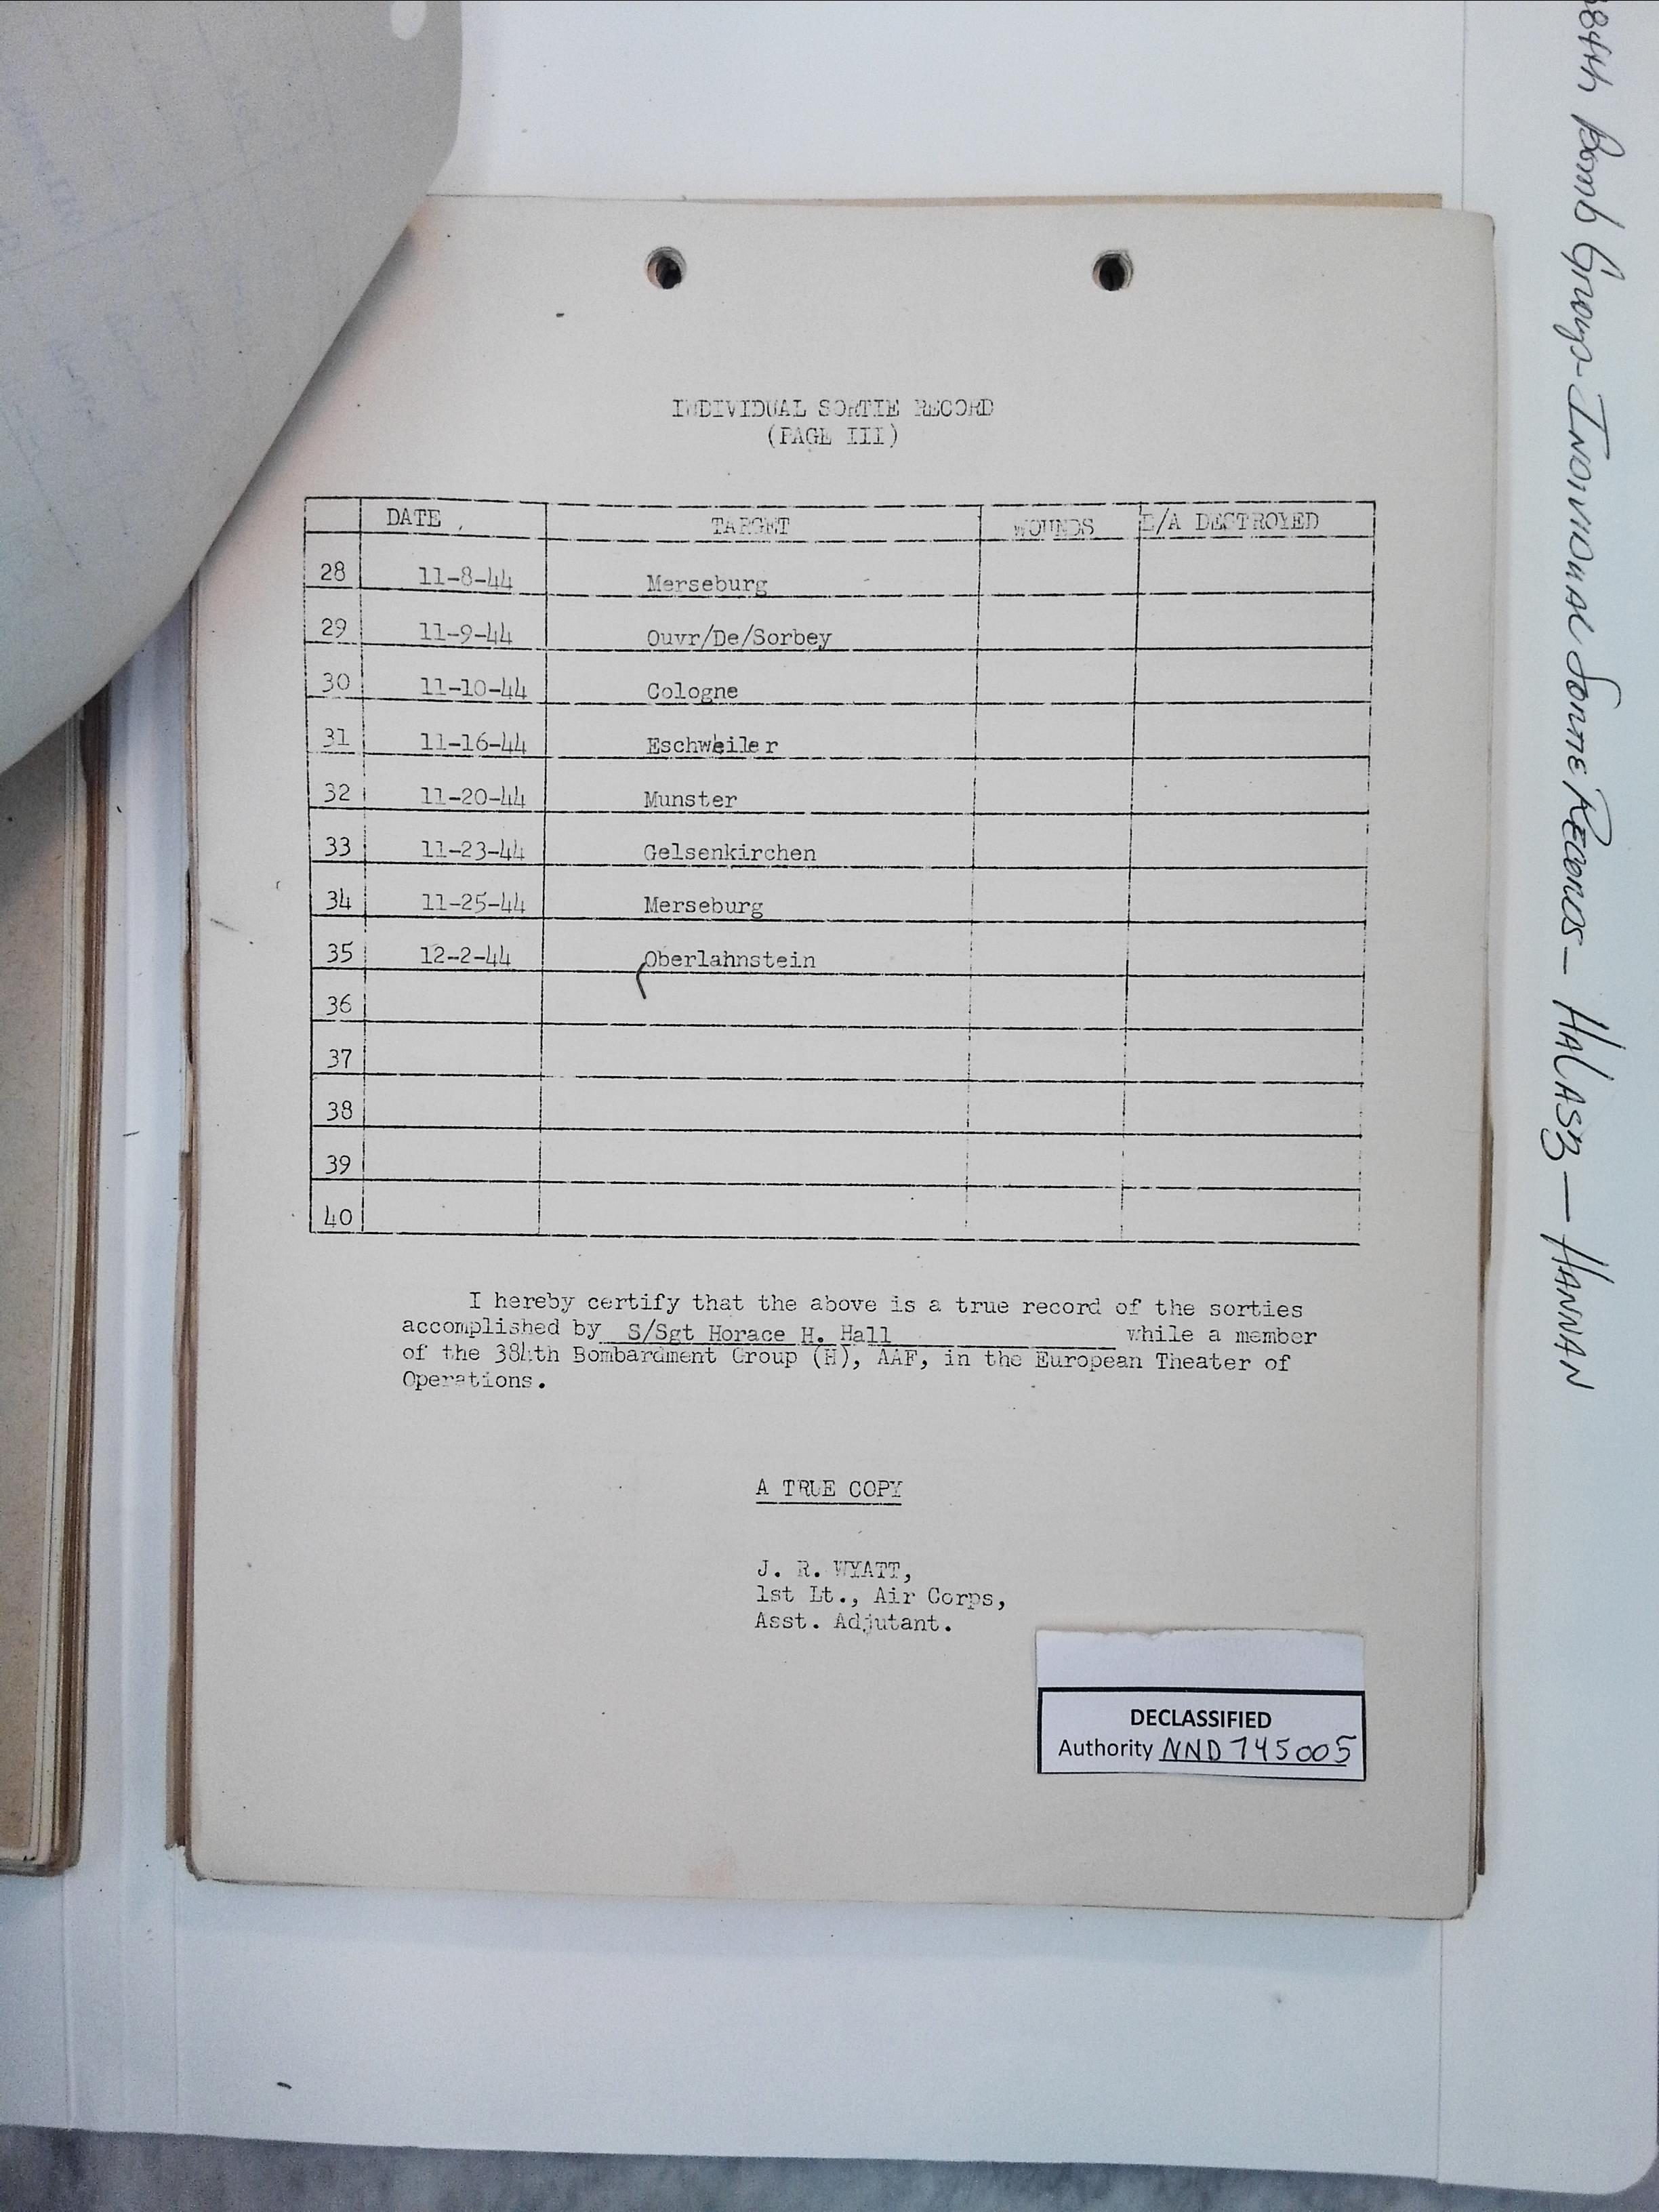 INDIVIDUAL SORTIE RECORD
(PAGE III)
DATE TARGET WOUNDS E/A DESTROYED
28 11-8-44 Merseburg
29 11-9-44 Ouvr/De/Sorbey
30 11-10-44 Cologne
31 11-16-44 Eschweiler
32 11-20-44 Munster
33 11-23-44 Gelsenkirchen
34 11-25-44 Merseburg
35 12-2-44 Oberlahnstein
36
37
38
39
40
I hereby certify that the above is a true record of the sorties
accomplished by S/Sgt Horace H. Hall while a member
of the 384th Bombardment Group (H), AAF, in the European Theater of
Operations.
A TRUE COPY
J. R. WYATT,
1st Lt., Air Corps,
Asst. Adjutant.
DECLASSIFIED
Authority NND 745005
384th Bomb Group - INDIVIDUAL SORTIE RECORDS - HALASZ - HANNAN